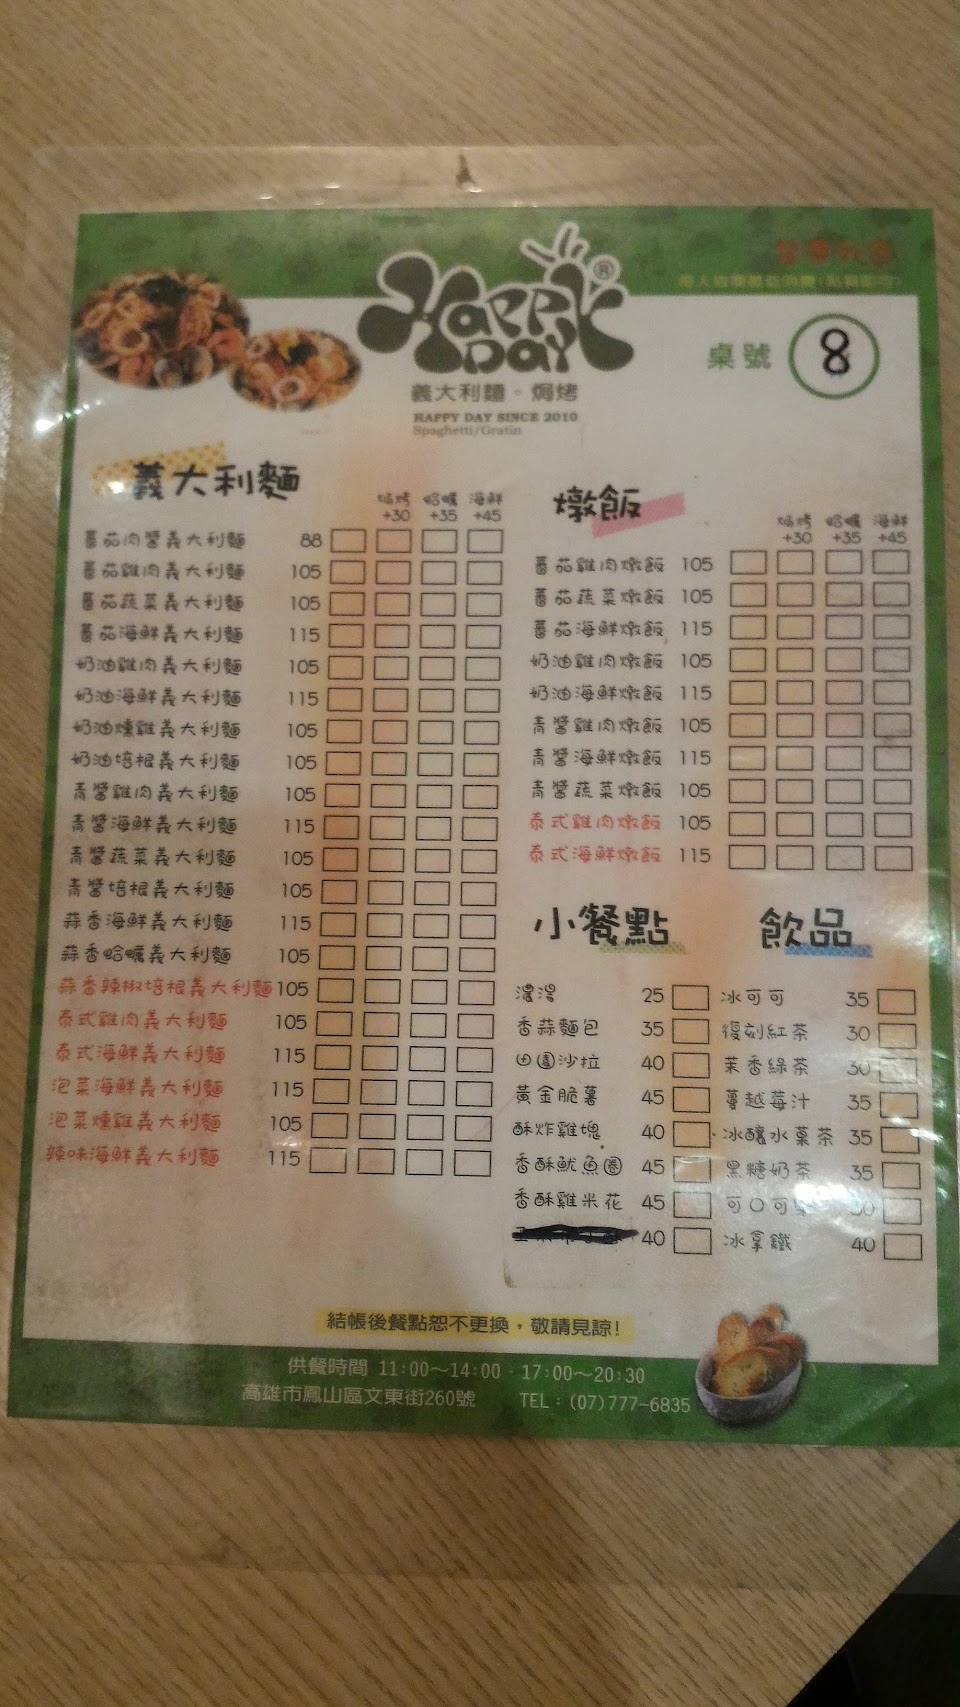 HAPPY DAY ®
桌號 8
義大利麵。焗烤
HAPPY DAY SINCE 2010
Spaghetti/Gratin
義大利麵
焗烤 蛤蠣 海鮮
+30 +35 +45
蕃茄肉醬義大利麵 88
蕃茄雞肉義大利麵 105
蕃茄蔬菜義大利麵 105
蕃茄海鮮義大利麵 115
奶油雞肉義大利麵 105
奶油海鮮義大利麵 115
奶油燻雞義大利麵 105
奶油培根義大利麵 105
青醬雞肉義大利麵 105
青醬海鮮義大利麵 115
青醬蔬菜義大利麵 105
青醬培根義大利麵 105
蒜香海鮮義大利麵 115
蒜香蛤蠣義大利麵 105
蒜香辣椒培根義大利麵 105
泰式雞肉義大利麵 105
泰式海鮮義大利麵 115
泡菜海鮮義大利麵 115
泡菜燻雞義大利麵 105
辣味海鮮義大利麵 115
燉飯
焗烤 蛤蠣 海鮮
+30 +35 +45
蕃茄雞肉燉飯 105
蕃茄蔬菜燉飯 105
蕃茄海鮮燉飯 115
奶油雞肉燉飯 105
奶油海鮮燉飯 115
青醬雞肉燉飯 105
青醬海鮮燉飯 115
青醬蔬菜燉飯 105
泰式雞肉燉飯 105
泰式海鮮燉飯 115
小餐點
濃湯 25
香蒜麵包 35
田園沙拉 40
黃金脆薯 45
酥炸雞塊 40
香酥魷魚圈 45
香酥雞米花 45
40
飲品
冰可可 35
復刻紅茶 30
茉香綠茶 30
蔓越莓汁 35
冰釀水菓茶 35
黑糖奶茶 35
可口可樂 30
冰拿鐵 40
結帳後餐點恕不更換，敬請見諒!
供餐時間 11:00～14:00 · 17:00～20:30
高雄市鳳山區文東街260號 TEL：(07)777-6835